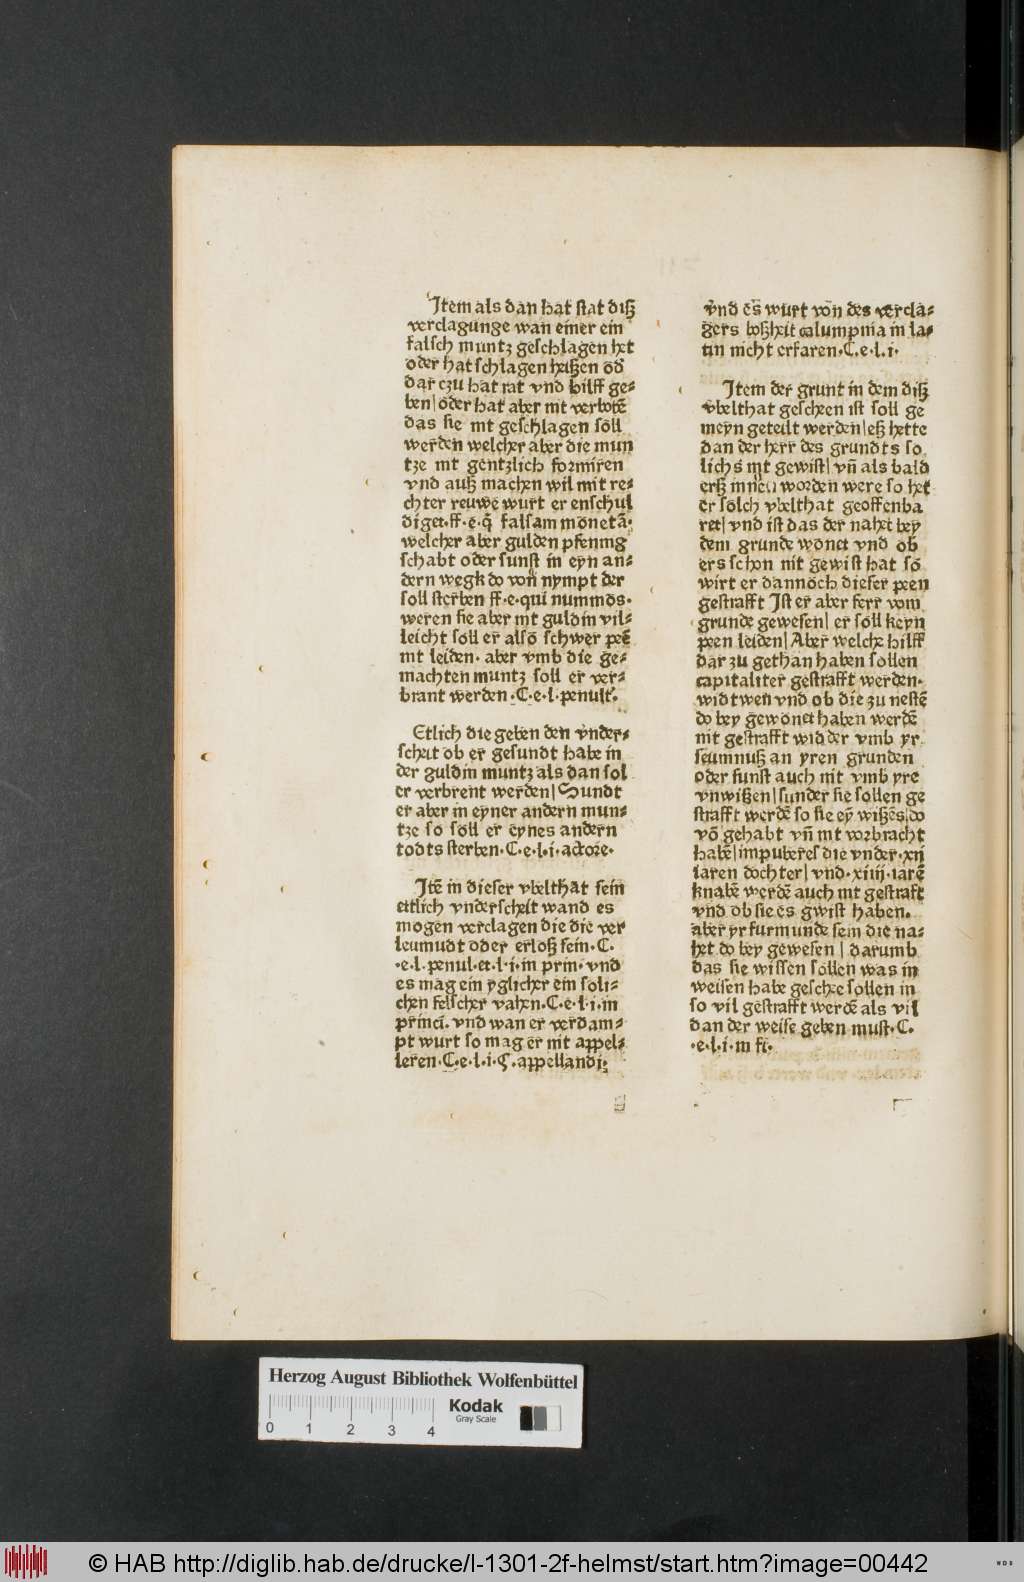 Item als dan hat stat diß
verclagunge wan einer ein
falsch muntz geschlagen het
oder hat schlagen heißen od̄
dar czu hat rat vnd hilff ge⸗
ben| oder hat aber nit verbotē
das sie nit geschlagen soll
werden welcher aber die mun
tze nit gentzlich formiren
vnd auß machen wil mit re⸗
chter reuwe wurt er enschul
diget·ff·e·q̄ falsam monetā·
welcher aber gulden pfennig
schabt oder sunst in eyn an⸗
dern wegk do von nympt der
soll sterben ff·e·qui nummos·
weren sie aber nit guldin vil⸗
leicht soll er also schwer peē
nit leiden· aber vmb die ge⸗
machten muntz soll er ver⸗
brant werden·C·e·l·penult·

Etlich die geben den vnder⸗
scheit ob er gesundt habe in
der guldin muntz als dan sol
er verbrent werden| Sundt
er aber in eyner andern mun⸗
tze so soll er eynes andern
todts sterben·C·e·l·i·actore·

Itē in dieser vbelthat sein
ettlich vnderscheit wand es
mogen verclagen die die ver
leumudt oder erloß sein·C·
·e·l·penul·et·l·i·in prin·vnd
es mag ein yglicher ein soli⸗
chen felscher vahen·C·e·l·i·in
princi·vnd wan er verdam⸗
pt wurt so mag er nit appel⸗
leren·C·e·l·i·ς·appellandi·
vnd es wurt von des vercla⸗
gers boßheit calumpnia in la⸗
tin nicht erfaren·C·e·l·i·

Item der grunt in dem diß
vbelthat gescheen ist soll ge
meyn geteilt werden| eß hette
dan der herr des grundts so
lichs nit gewist| vn̄ als bald
erß innen worden were so het
er solch vbelthat geoffenba
ret| vnd ist das der nahet bey
dem grunde wonet vnd ob
ers schon nit gewist hat so
wirt er dannoch dieser peen
gestrafft Ist er aber ferr vom
grunde gewesen| er soll keyn
peen leiden| Aber welche hilff
dar zu gethan haben sollen
capitaliter gestrafft werden·
widtwen vnd ob die zu nestē
do bey gewonet haben werdē
nit gestrafft wid der vmb yr
seumnuß an yren grunden
oder sunst auch nit vmb yre
vnwißen| sunder sie sollen ge
strafft werdē so sie ey̅ wißēs do
vō gehabt vn̄ nit vorbracht
habē| impuberes die vnder·xij
iaren dochter| vnd·xiiij·iarē
knabē werdē auch nit gestraft
vnd ob sie es gwist haben·
aber yr furmunde sein die na⸗
het do bey gewesen| darumb
das sie wissen sollen was in
weisen habe geschee sollen in
so vil gestrafft werdē als vil
dan der weise geben must·C·
·e·l·i·in fi·

Herzog August Bibliothek Wolfenbüttel
Kodak
Gray Scale
0 1 2 3 4
© HAB http://diglib.hab.de/drucke/l-1301-2f-helmst/start.htm?image=00442